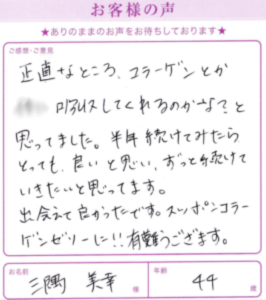 お客様の声
★ありのままのお声をお待ちしております★
ご感想・ご意見
正直なところ、コラーゲンとか
吸収してくれるのかな?と
思ってました。半年続けてみたら
とっても、良いと思い、ずっと続けて
いきたいと思ってます。
出会えて良かったです。スッポンコラー
ゲンゼリーに!!有難うござます。
お名前 三隅 美幸 様 年齢 44 歳